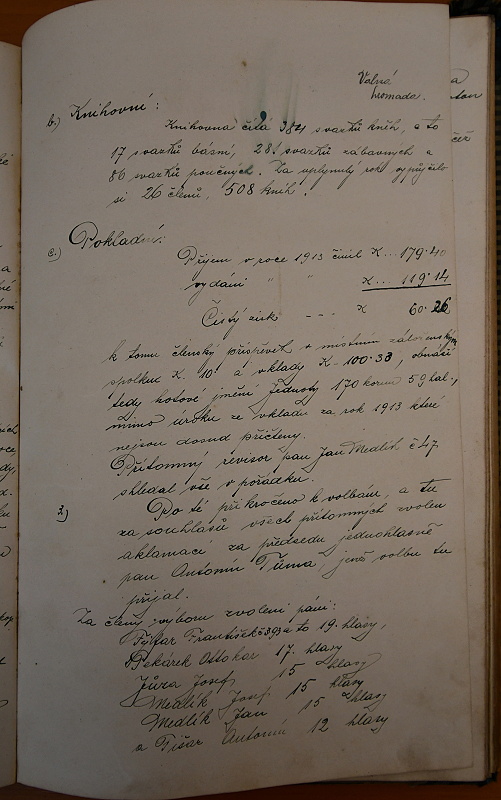 Valná
hromada.
b.) Knihovní:
Knihovna čítá 384 svazků knih, a to
17 svazků básní, 281 svazků zábavných a
86 svazků poučných. Za uplynulý rok vypůjčilo
si 26 členů, 508 knih.
c.) Pokladní:
Příjem v roce 1913 činil K... 179·40
vydání " " K... 119·14
Čistý zisk --- K 60·26
k tomu členský příspěvek v místním záloženským
spolku K. 10· a vklady K 100·33, obnáší
tedy hotové jmění Jednoty 170 korun 59 hal.,
mimo úroku ze vkladu za rok 1913 které
nejsou dosud přičteny.
Přítomný revisor pan Jan Medlík č 47.
shledal vše v pořádku.
Po té přikročeno k volbám, a tu
za souhlasu všech přítomných zvolen
aklamací za předsedu jednohlasně
pan Antonín Tůma, jenž volbu tu
přijal.
Za členy výboru zvoleni páni:
František č 393 a to 19. hlasy,
Pekárek Ottokar 17. hlasy
Jůza Josef 15 hlasy
Medlík Josef 15 hlasy
Medlík Jan 15 hlasy
a Tišar Antonín 12 hlasy